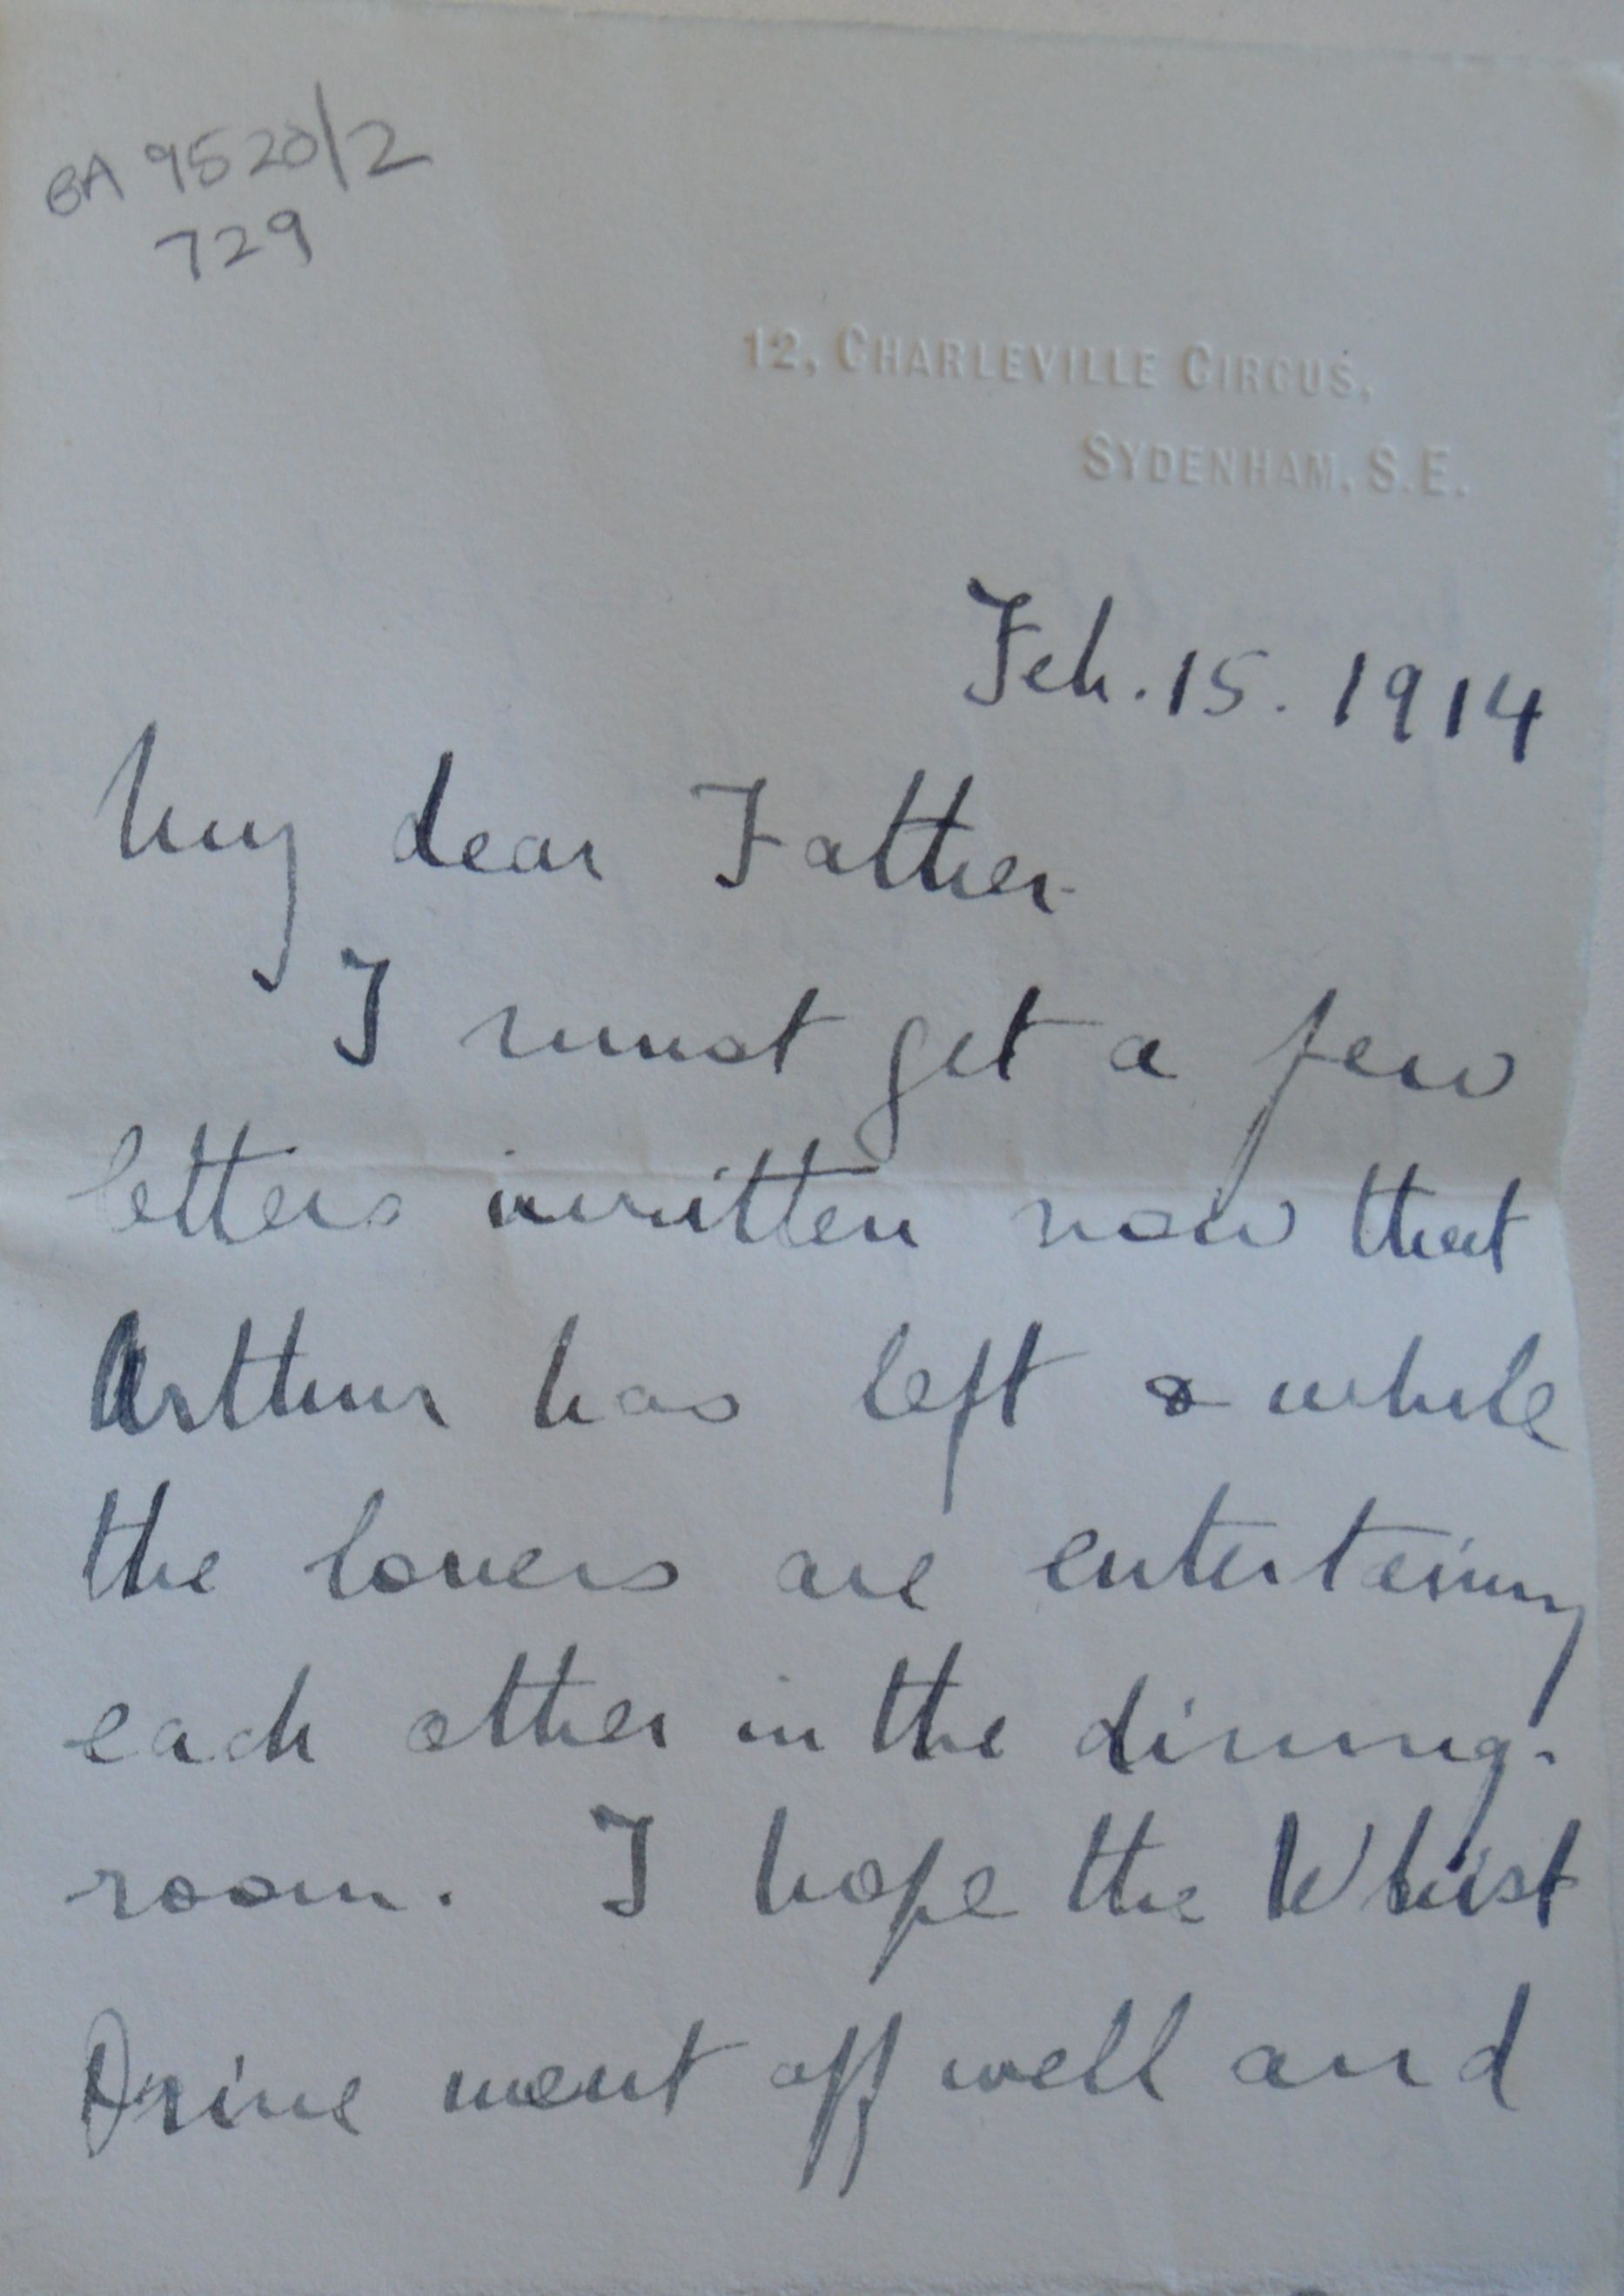 BA 9520/2
729
12, CHARLEVILLE CIRCUS,
SYDENHAM, S.E.
Feb. 15. 1914
My dear Father
I must get a few
letters written now that
Arthur has left & while
the lovers are entertaining
each other in the dining-
room. I hope the Whist
Drive went off well and